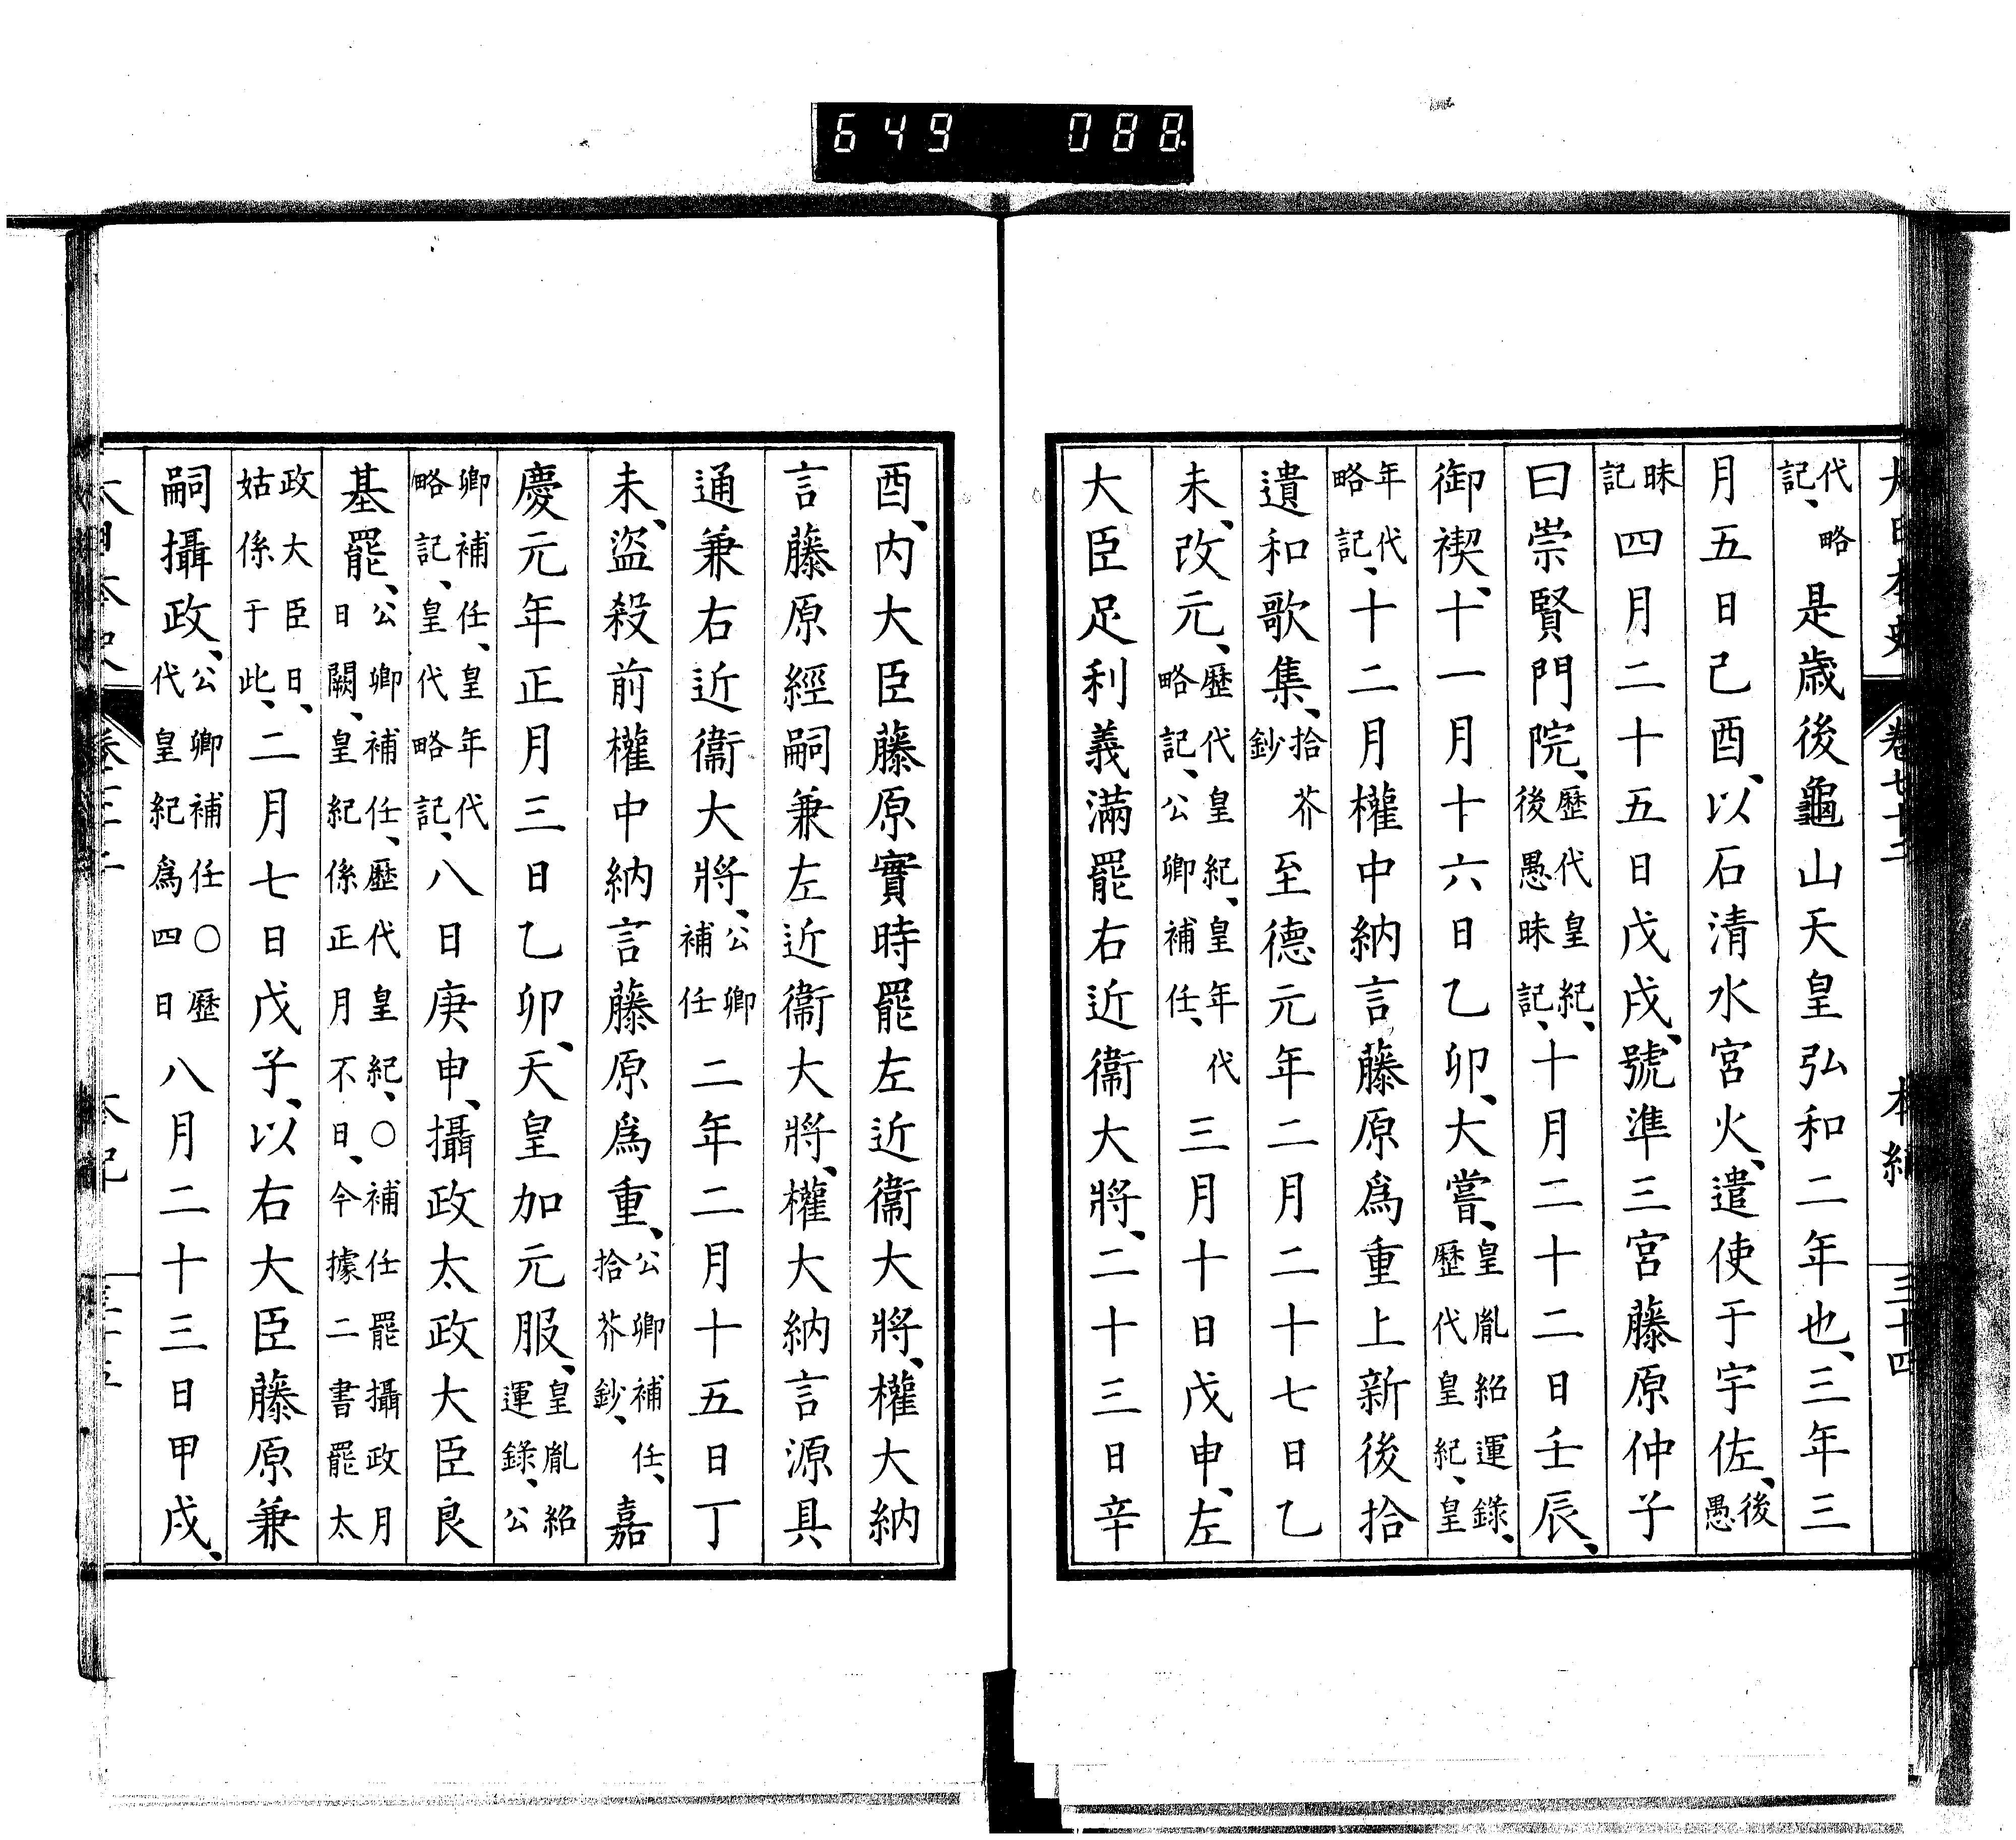 大日本史 卷七十二 本紀 三十四
代略記、是歲後龜山天皇弘和二年也、三年三
月五日己酉、以石清水宮火、遣使于宇佐、後愚
昧記四月二十五日戊戌、號準三宮藤原仲子
曰崇賢門院、歷代皇紀、後愚昧記、十月二十二日壬辰、
御禊、十一月十六日乙卯、大嘗、皇胤紹運錄、歷代皇紀、皇
年代略記、十二月權中納言藤原爲重上新後拾
遺和歌集、拾芥鈔至德元年二月二十七日乙
未、改元、歷代皇紀、皇年代略記、公卿補任、三月十日戊申、左
大臣足利義滿罷右近衞大將、二十三日辛
酉、内大臣藤原實時罷左近衞大將、權大納
言藤原經嗣兼左近衞大將、權大納言源具
通兼右近衞大將、公卿補任二年二月十五日丁
未、盜殺前權中納言藤原爲重、公卿補任、拾芥鈔、嘉
慶元年正月三日乙卯、天皇加元服、皇胤紹運錄、公
卿補任、皇年代略記、皇代略記、八日庚申、攝政太政大臣良
基罷、公卿補任、歷代皇紀、○補任罷攝政月日闕、皇紀係正月不日、今據二書罷太
政大臣日、姑係于此、二月七日戊子、以右大臣藤原兼
嗣攝政、公卿補任○歷代皇紀爲四日八月二十三日甲戌、
649 088